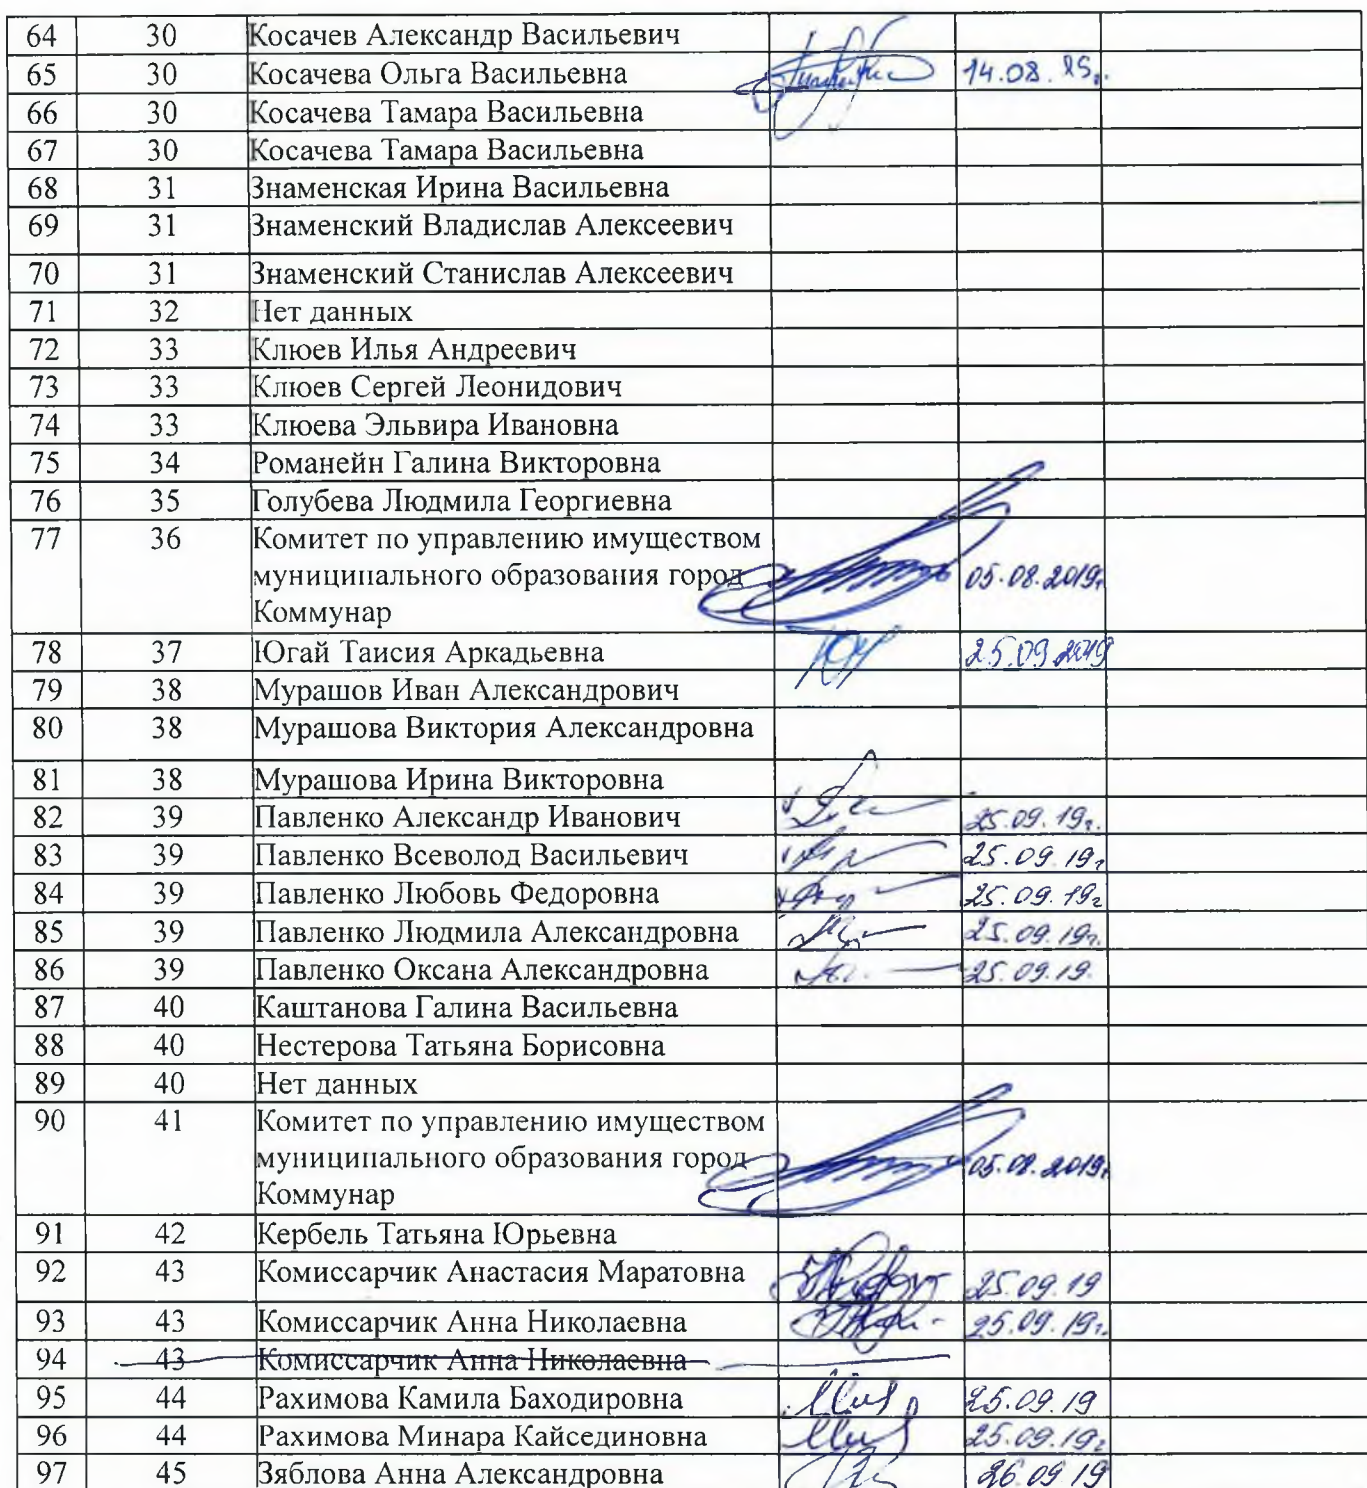 64 30 Косачев Александр Васильевич
65 30 Косачева Ольга Васильевна 14.08.
66 30 Косачева Тамара Васильевна
67 30 Косачева Тамара Васильевна
68 31 Знаменская Ирина Васильевна
69 31 Знаменский Владислав Алексеевич
70 31 Знаменский Станислав Алексеевич
71 32 Нет данных
72 33 Клюев Илья Андреевич
73 33 Клюев Сергей Леонидович
74 33 Клюева Эльвира Ивановна
75 34 Романейн Галина Викторовна
76 35 Голубева Людмила Георгиевна
77 36 Комитет по управлению имуществом
муниципального образования город 05.08.2019г
Коммунар
78 37 Югай Таисия Аркадьевна 25.09.2019
79 38 Мурашов Иван Александрович
80 38 Мурашова Виктория Александровна
81 38 Мурашова Ирина Викторовна
82 39 Павленко Александр Иванович 25.09.19г.
83 39 Павленко Всеволод Васильевич 25.09.19г
84 39 Павленко Любовь Федоровна 25.09.19г
85 39 Павленко Людмила Александровна 25.09.19г.
86 39 Павленко Оксана Александровна 25.09.19.
87 40 Каштанова Галина Васильевна
88 40 Нестерова Татьяна Борисовна
89 40 Нет данных
90 41 Комитет по управлению имуществом
муниципального образования город 05.08.2019г
Коммунар
91 42 Кербель Татьяна Юрьевна
92 43 Комиссарчик Анастасия Маратовна 25.09.19
93 43 Комиссарчик Анна Николаевна 25.09.19г.
94 43 Комиссарчик Анна Николаевна
95 44 Рахимова Камила Баходировна 25.09.19
96 44 Рахимова Минара Кайсединовна 25.09.19г
97 45 Зяблова Анна Александровна 26.09 19